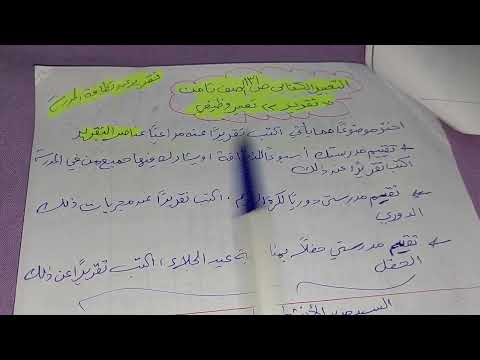 تقرير عن نظافة المدرسة
التعبير الكتابي ص ١٣١ صف ثامن
تقرير تعبير وظيفي
اختر موضوعًا مما يأتي اكتب تقريرًا عنه مراعيًا عناصر التقرير
تقيم مدرستك أسبوعًا للنظافة ويشارك فيها جميع من في المدرسة
اكتب تقريرًا عن ذلك
تقيم مدرستي دوريًا لكرة ، اكتب تقريرًا عن مجريات ذلك
الدوري
تقيم مدرستي حفلًا عيد الجلاء ، اكتب تقريرًا عن ذلك
الحفل